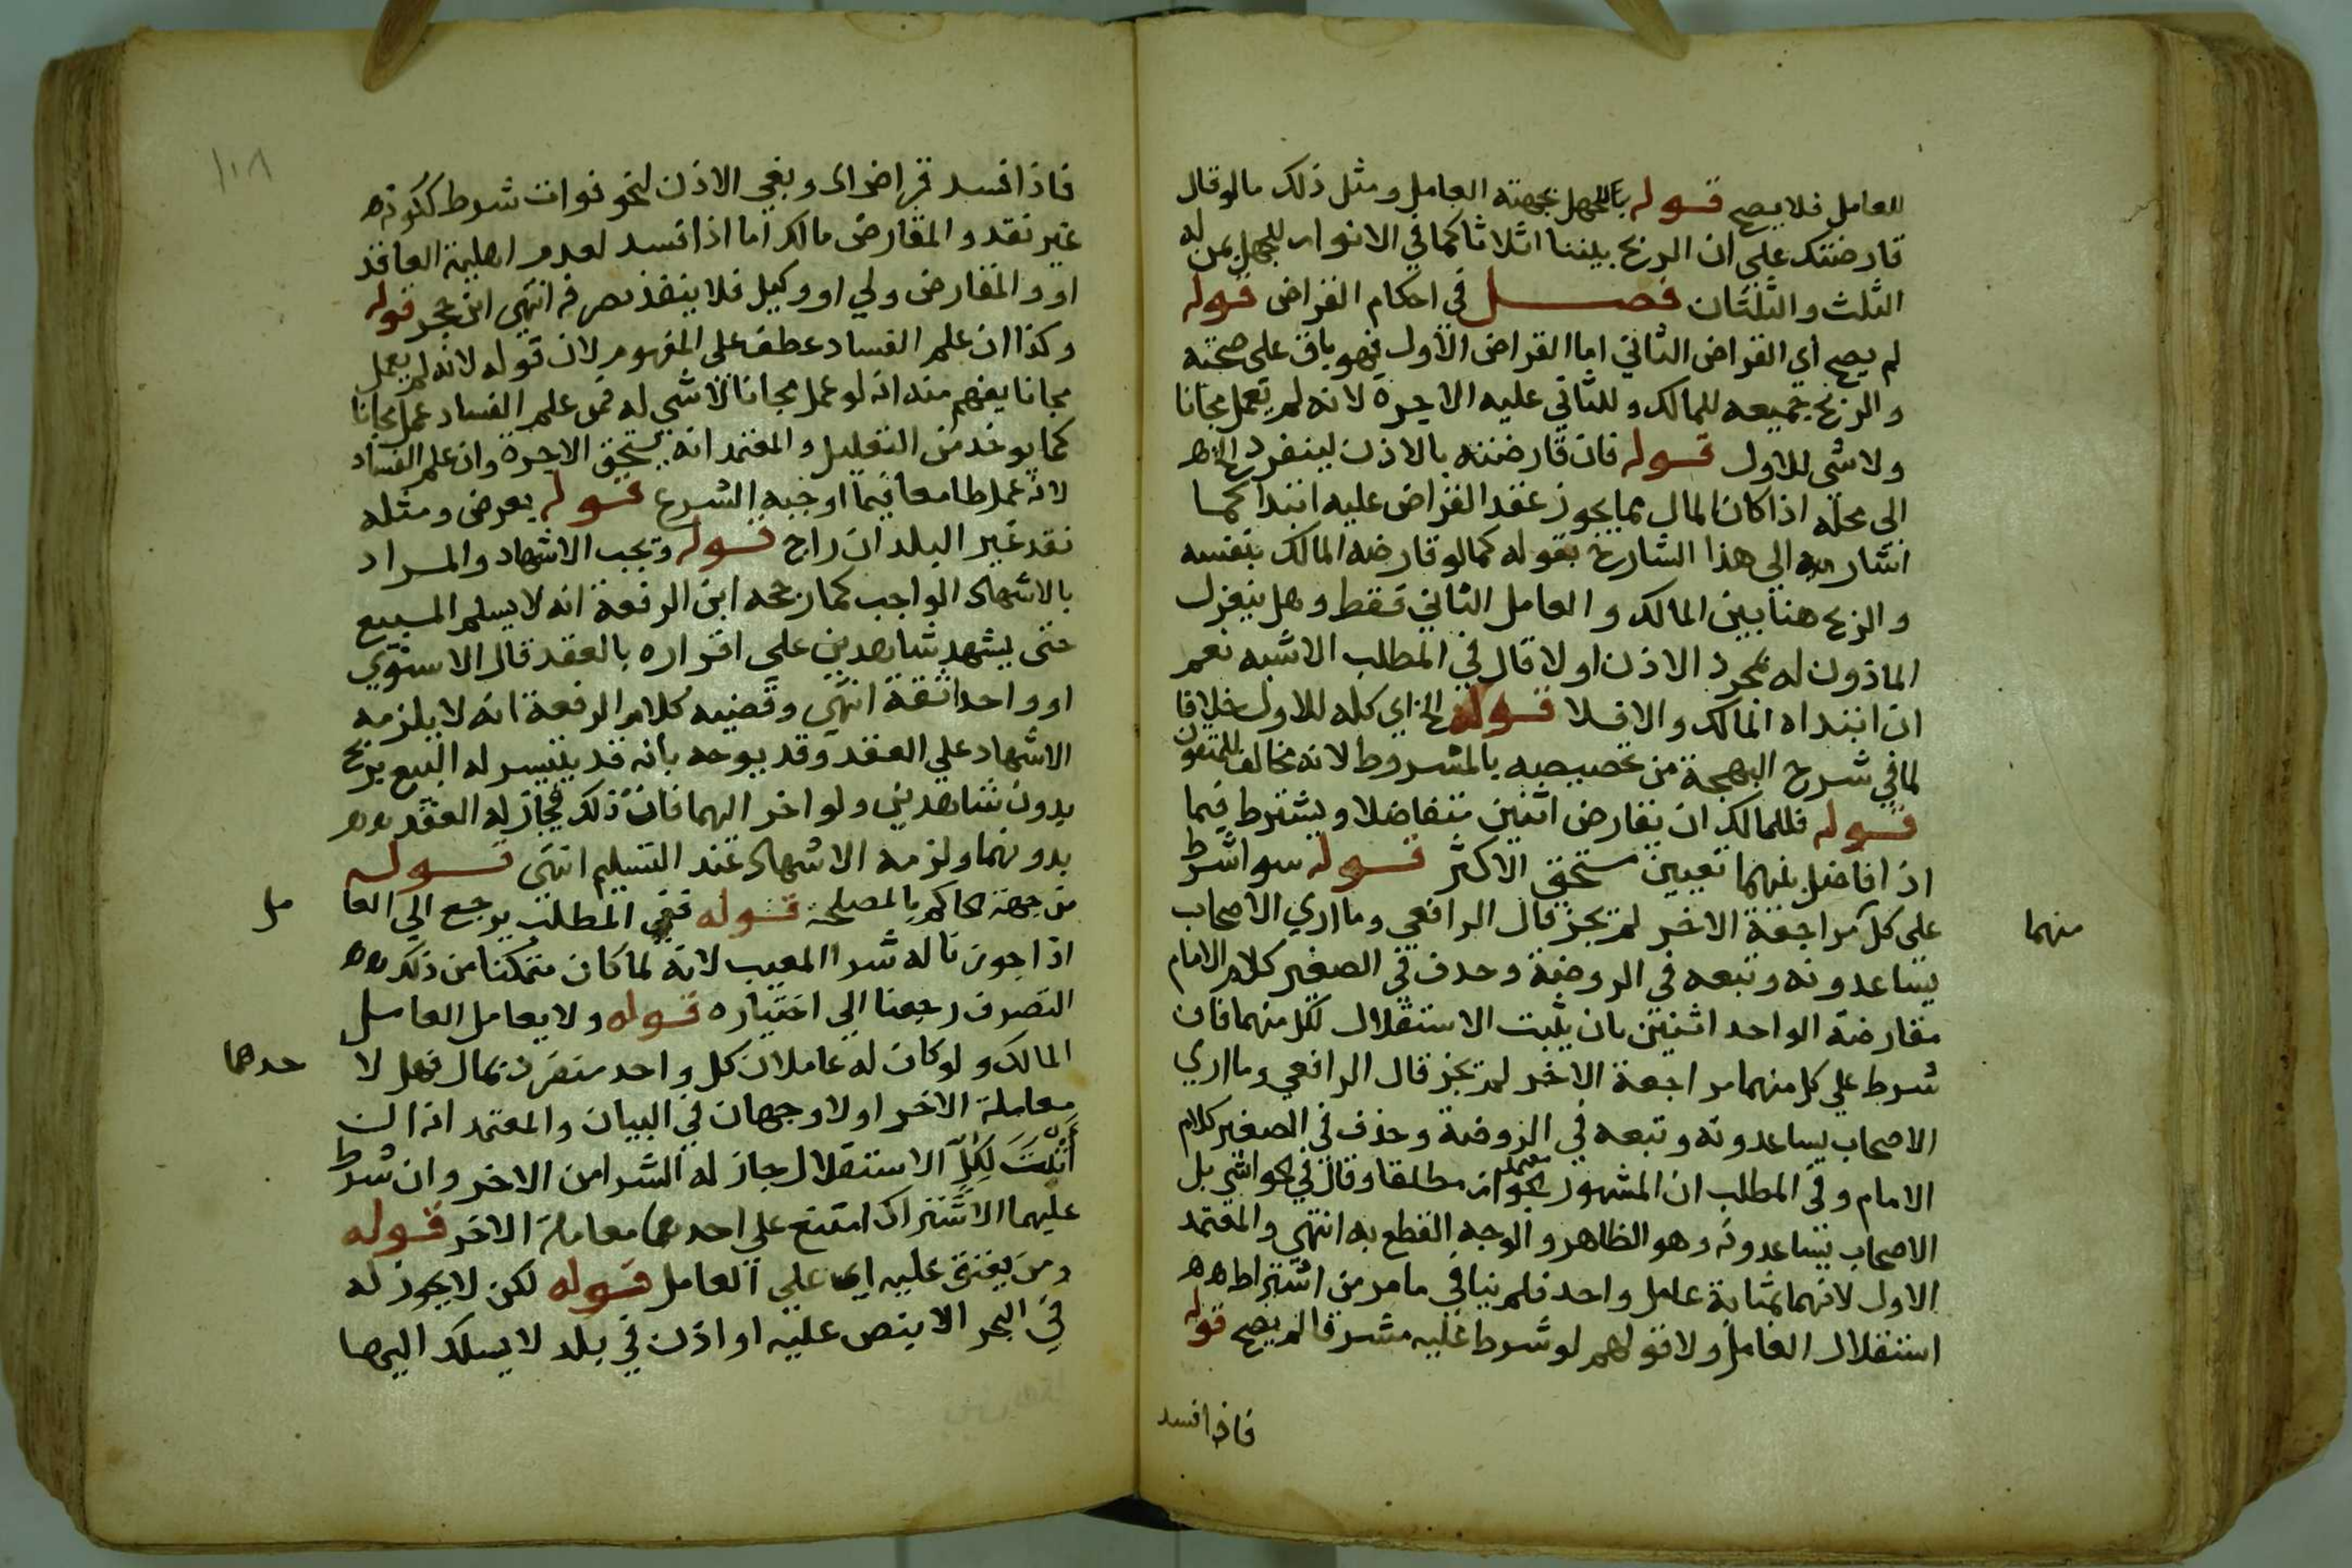 للعامل فلا يصح قوله بالجهل بجهته العامل ومثل ذلك ما لو قال
قارضتك علي ان الربح بيننا اثلاثا كما في الانوار للجهل بمن له
الثلث والثلثان فصل في احكام القراض قوله
لم يصح اي القراض الثاني اما القراض الاول فهو باق علي صحته
والربح جميعه للمالك وللثاني عليه الاجرة لانه لم يعمل مجانا
ولا شي للاول قوله فان قارضته بالاذن لينفرد الخ
الي محله اذا كان المال مما يجوز عقد القراض عليه ابتدا كما
اشار اليه الي هذا الشارح بقوله كما لو قارضه المالك بنفسه
والربح هنا بين المالك والعامل الثاني فقط وهل ينعزل
الماذون له بمجرد الاذن او لا قال في المطلب الاشبه نعم
ان ابتداه المالك والا فلا قوله الخ اي كله للاول خلافا
لما في شرح البهجة من تخصيصه بالمشروط لانه مخالف للمنقول
قوله فللمالك ان يقارض اثنين متفاضلا ويشترط فيما
اذا فاضل بينهما تعيين مستحق الاكثر قوله سوا شرط
على كل مراجعة الاخر لم يجز قال الرافعي وما اري الاصحاب
منهما
يساعدونه وتبعه في الروضة وحذف في الصغير كلام الامام
مقارضة الواحد اثنين بان يثبت الاستقلال لكل منهما فان
شرط علي كل منهما مراجعة الاخر لم يجز قال الرافعي وما اري
الاصحاب يساعدونه وتبعه في الروضة وحذف في الصغير كلام
الامام وفي المطلب ان المشهور الجواز مطلقا وقال في الحواشي بل
الاصحاب يساعدونه وهو الظاهر والوجه القطع به انتهي والمعتمد
الاول لانهما بمثابة عامل واحد فلم ينافي ما مر من اشتراط
استقلال العامل ولا قولهم لو شرط عليه مشرفا لم يصح قوله
فاذا فسد
١٠٨
فاذا فسد قراض اي وبقي الاذن لنحو فوات شرط ككونه
غير نقد والمقارض مالك اما اذا فسد لعدم اهلية العاقد
او والمقارض ولي او وكيل فلا ينفذ تصرفه انتهي ابن حجر قوله
وكذا ان علم الفساد عطف علي المفهوم لان قوله لانه لم يعمل
مجانا يفهم منه انه لو عمل مجانا لا شي له فمن علم الفساد عمل مجانا
كما يوخذ من التعليل والمعتمد انه يستحق الاجرة وان علم الفساد
لانه عمل طامعا فيما اوجبه الشرع قوله بعرض ومثله
نقد غير البلد ان راج قوله ويجب الاشهاد والمراد
بالاشهاد الواجب كما رجحه ابن الرفعة انه لا يسلم المبيع
حتى يشهد شاهدين علي اقراره بالعقد قال الاسنوي
او واحدا ثقة انتهي وقضيه كلام الرفعة انه لا يلزمه
الاشهاد علي العقد وقد يوجه بانه قد يتيسر له البيع بربح
بدون شاهدين ولو اخر اليهما فات ذلك فجاز له العقد
بدونهما ولزمه الاشهاد عند التسليم انتهي قوله
من جهة الحاكم بالمصلحة قوله ففي المطلب يرجع الي العا
مل
اذا جوزنا له شرا المعيب لانه لما كان متمكنا من ذلك
التصرف رجعنا الي اختياره قوله ولا يعامل العامل
المالك ولو كان له عاملان كل واحد منفرد بمال فهل لا
حدهما
معاملة الاخر او لا وجهان في البيان والمعتمد انه ان
أثبت لكل الاستقلال جاز له الشرا من الاخر وان شرط
عليهما الاشتراك امتنع علي احدهما معاملة الاخر قوله
ومن يعتق عليه اي علي العامل قوله لكن لا يجوز له
في البحر الا ينص عليه او اذن في بلد لا يسلك اليها